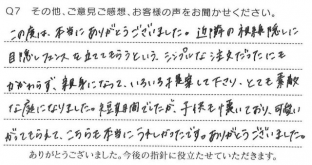 Q7 その他、ご意見ご感想、お客様の声をお聞かせください。
この度は、本当にありがとうございました。近隣の視線隠しに
目隠しフェンスを立ててもらうという、シンプルな注文だったにも
かかわらず、親身になって、いろいろ提案して下さり、とても素敵
な庭になりました。短期間でしたが、子供も懐いており、可愛い
がってもらえて、こちらも本当にうれしかったです。ありがとうございました。
ありがとうございました。今後の指針に役立たせていただきます。